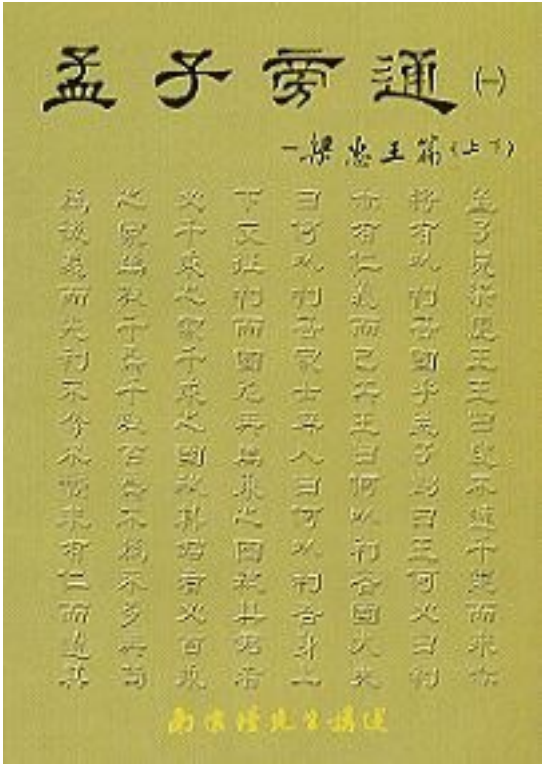 孟子旁通(一)
一梁惠王篇(上下)
孟子見梁惠王王曰叟不遠千里而來亦
將有以利吾國乎孟子對曰王何必曰利
亦有仁義而已矣王曰何以利吾國大夫
曰何以利吾家士庶人曰何以利吾身上
下交征利而國危矣萬乘之國弒其君者
必千乘之家千乘之國弒其君者必百乘
之家萬取千焉千取百焉不為不多矣苟
為後義而先利不奪不饜未有仁而遺其
南懷瑾先生講述